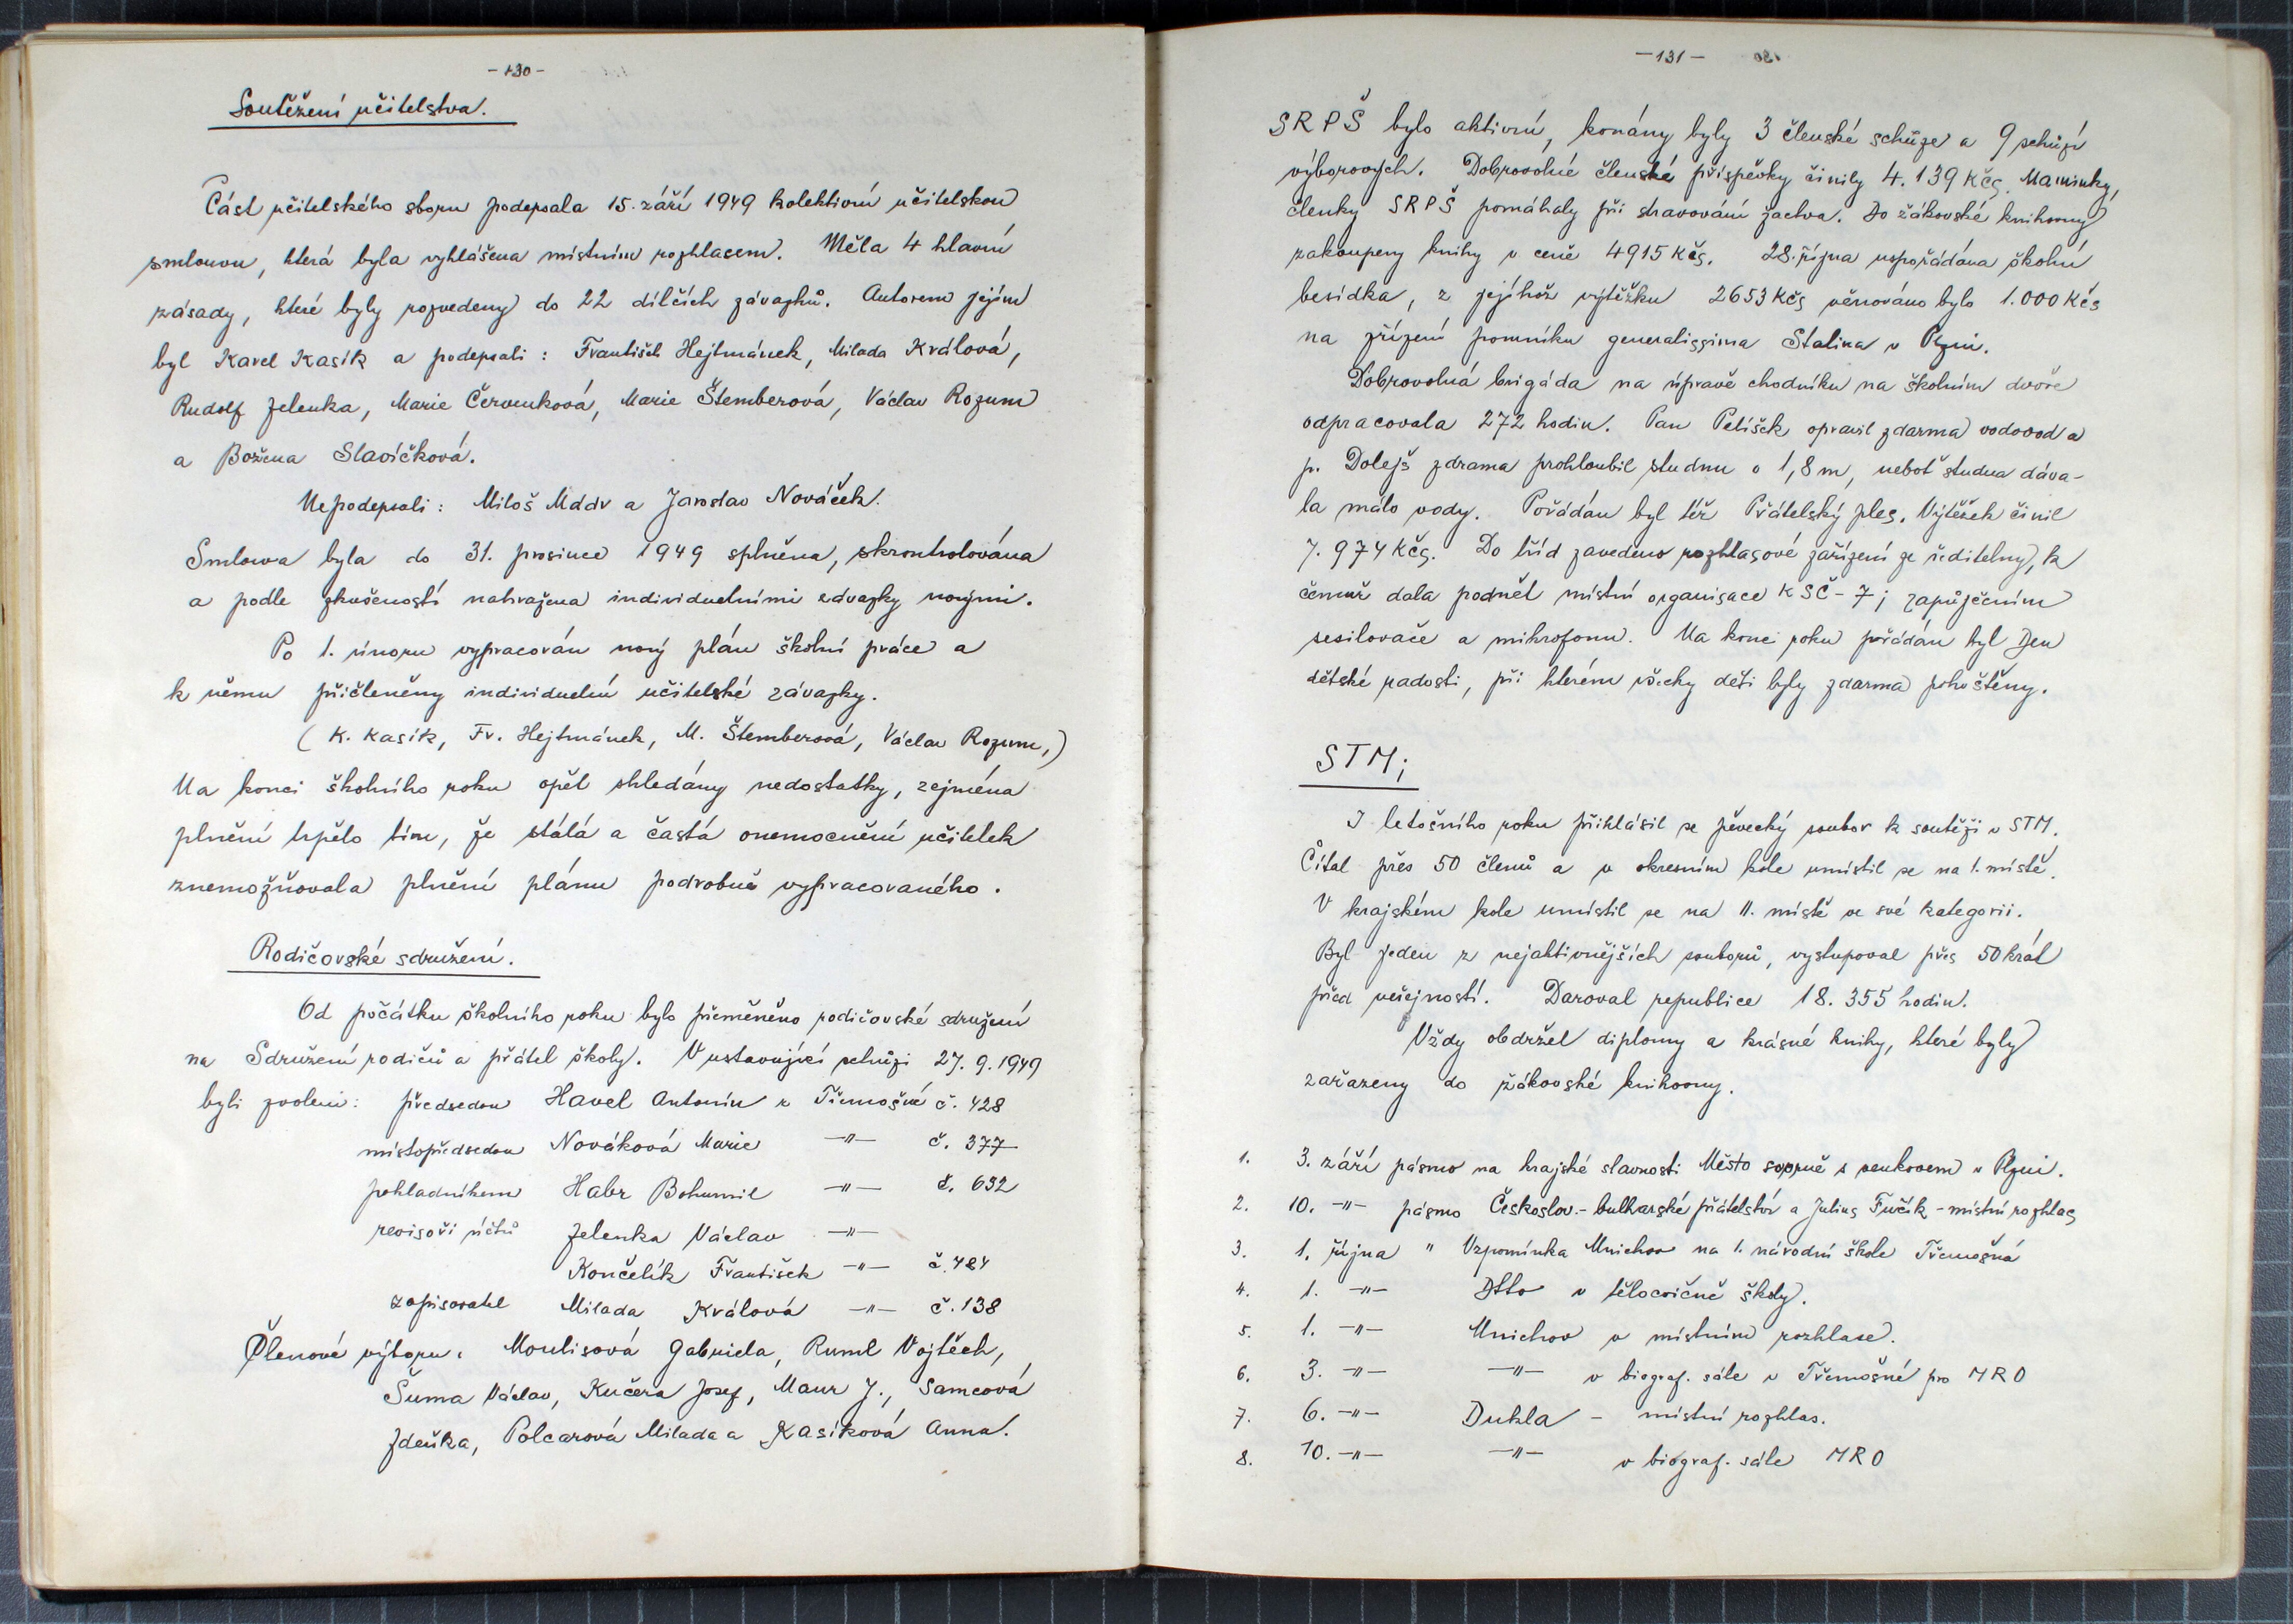 - 130 -
Soutěžení učitelstva.
Část učitelského sboru podepsala 15. září 1949 kolektivní učitelskou
smlouvu, která byla vyhlášena místním rozhlasem. Měla 4 hlavní
zásady, které byly rozvedeny do 22 dílčích závazků. Autorem jejím
byl Karel Kasík a podepsali: František Hejtmánek, Milada Králová,
Rudolf Jelenka, Marie Červenková, Marie Štemberová, Václav Rozum
a Božena Slavíčková.
Nepodepsali: Miloš Mádr a Jaroslav Nováček.
Smlouva byla do 31. prosince 1949 splněna, skrontrolována
a podle zkušeností nahražena individuelními závazky novými.
Po 1. únoru vypracován nový plán školní práce a
k němu přičleněny individuelní učitelské závazky.
(K. Kasík, Fr. Hejtmánek, M. Štemberová, Václav Rozum,)
Na konci školního roku opět shledány nedostatky, zejména
plnění trpělo tím, že stálá a častá onemocnění učitelek
znemožňovala plnění plánu podrobně vypracovaného.
Rodičovské sdružení.
Od počátku školního roku bylo přeměněno rodičovské sdružení
na Sdružení rodičů a přátel školy. V ustavující schůzi 27. 9. 1949
byli zvoleni: předsedou Havel Antonín z Třemošné č. 428
místopředsedou Nováková Marie -"- č. 377
pokladníkem Habr Bohumil -"- č. 632
revisoři účtů Jelenka Václav -"-
Končelík František -"- č. 484
zapisovatel Milada Králová -"- č. 138
Členové výboru: Moulisová Gabriela, Ruml Vojtěch,
Šuma Václav, Kučera Josef, Maur J., Samcová
Zdeňka, Polcarová Milada a Kasíková Anna.
- 131 -
SRPŠ bylo aktivní, konány byly 3 členské schůze a 9 schůzí
výborových. Dobrovolné členské příspěvky činily 4.139 Kčs. Maminky,
členky SRPŠ pomáhaly při stravování žactva. Do žákovské knihovny
zakoupeny knihy v ceně 4915 Kčs. 28. října uspořádána školní
besídka, z jejíhož výtěžku 2653 Kčs věnováno bylo 1.000 Kčs
na zřízení pomníku generalissima Stalina v Plzni.
Dobrovolná brigáda na úpravě chodníku na školním dvoře
odpracovala 272 hodin. Pan Pelíšek opravil zdarma vodovod a
p. Dolejš zdrama prohloubil studnu o 1,8 m, neboť studna dáva-
la málo vody. Pořádán byl též Přátelský ples. Výtěžek činil
7.974 Kčs. Do tříd zavedeno rozhlasové zařízení ze ředitelny, k
čemuž dala podnět místní organisace KSČ - 7 j zapůjčením
sesilovače a mikrofonu. Na konci roku pořádán byl Den
dětské radosti, při kterém všecky děti byly zdarma pohoštěny.
STM;
I letošního roku přihlásil se pěvecký soubor k soutěži v STM.
Čítal přes 50 členů a v okresním kole umístil se na 1. místě.
V krajském kole umístil se na II. místě ve své kategorii.
Byl jeden z nejaktivnějších souborů, vystupoval přes 50krát
před veřejností. Daroval republice 18.355 hodin.
Vždy obdržel diplomy a krásné knihy, které byly
zařazeny do žákovské knihovny.
1. 3. září pásmo na krajské slavnosti Město svorně s venkovem v Plzni.
2. 10. -"- pásmo Českoslov.-bulharské přátelství a Julius Fučík - místní rozhlas
3. 1. října " Vzpomínka Mnichov na 1. národní škole Třemošná
4. 1. -"- Dtto v tělocvičně školy.
5. 1. -"- Mnichov v místním rozhlase.
6. 3. -"- -"- v biograf. sále v Třemošné pro MRO
7. 6. -"- Dukla - místní rozhlas.
8. 10. -"- -"- v biograf. sále MRO